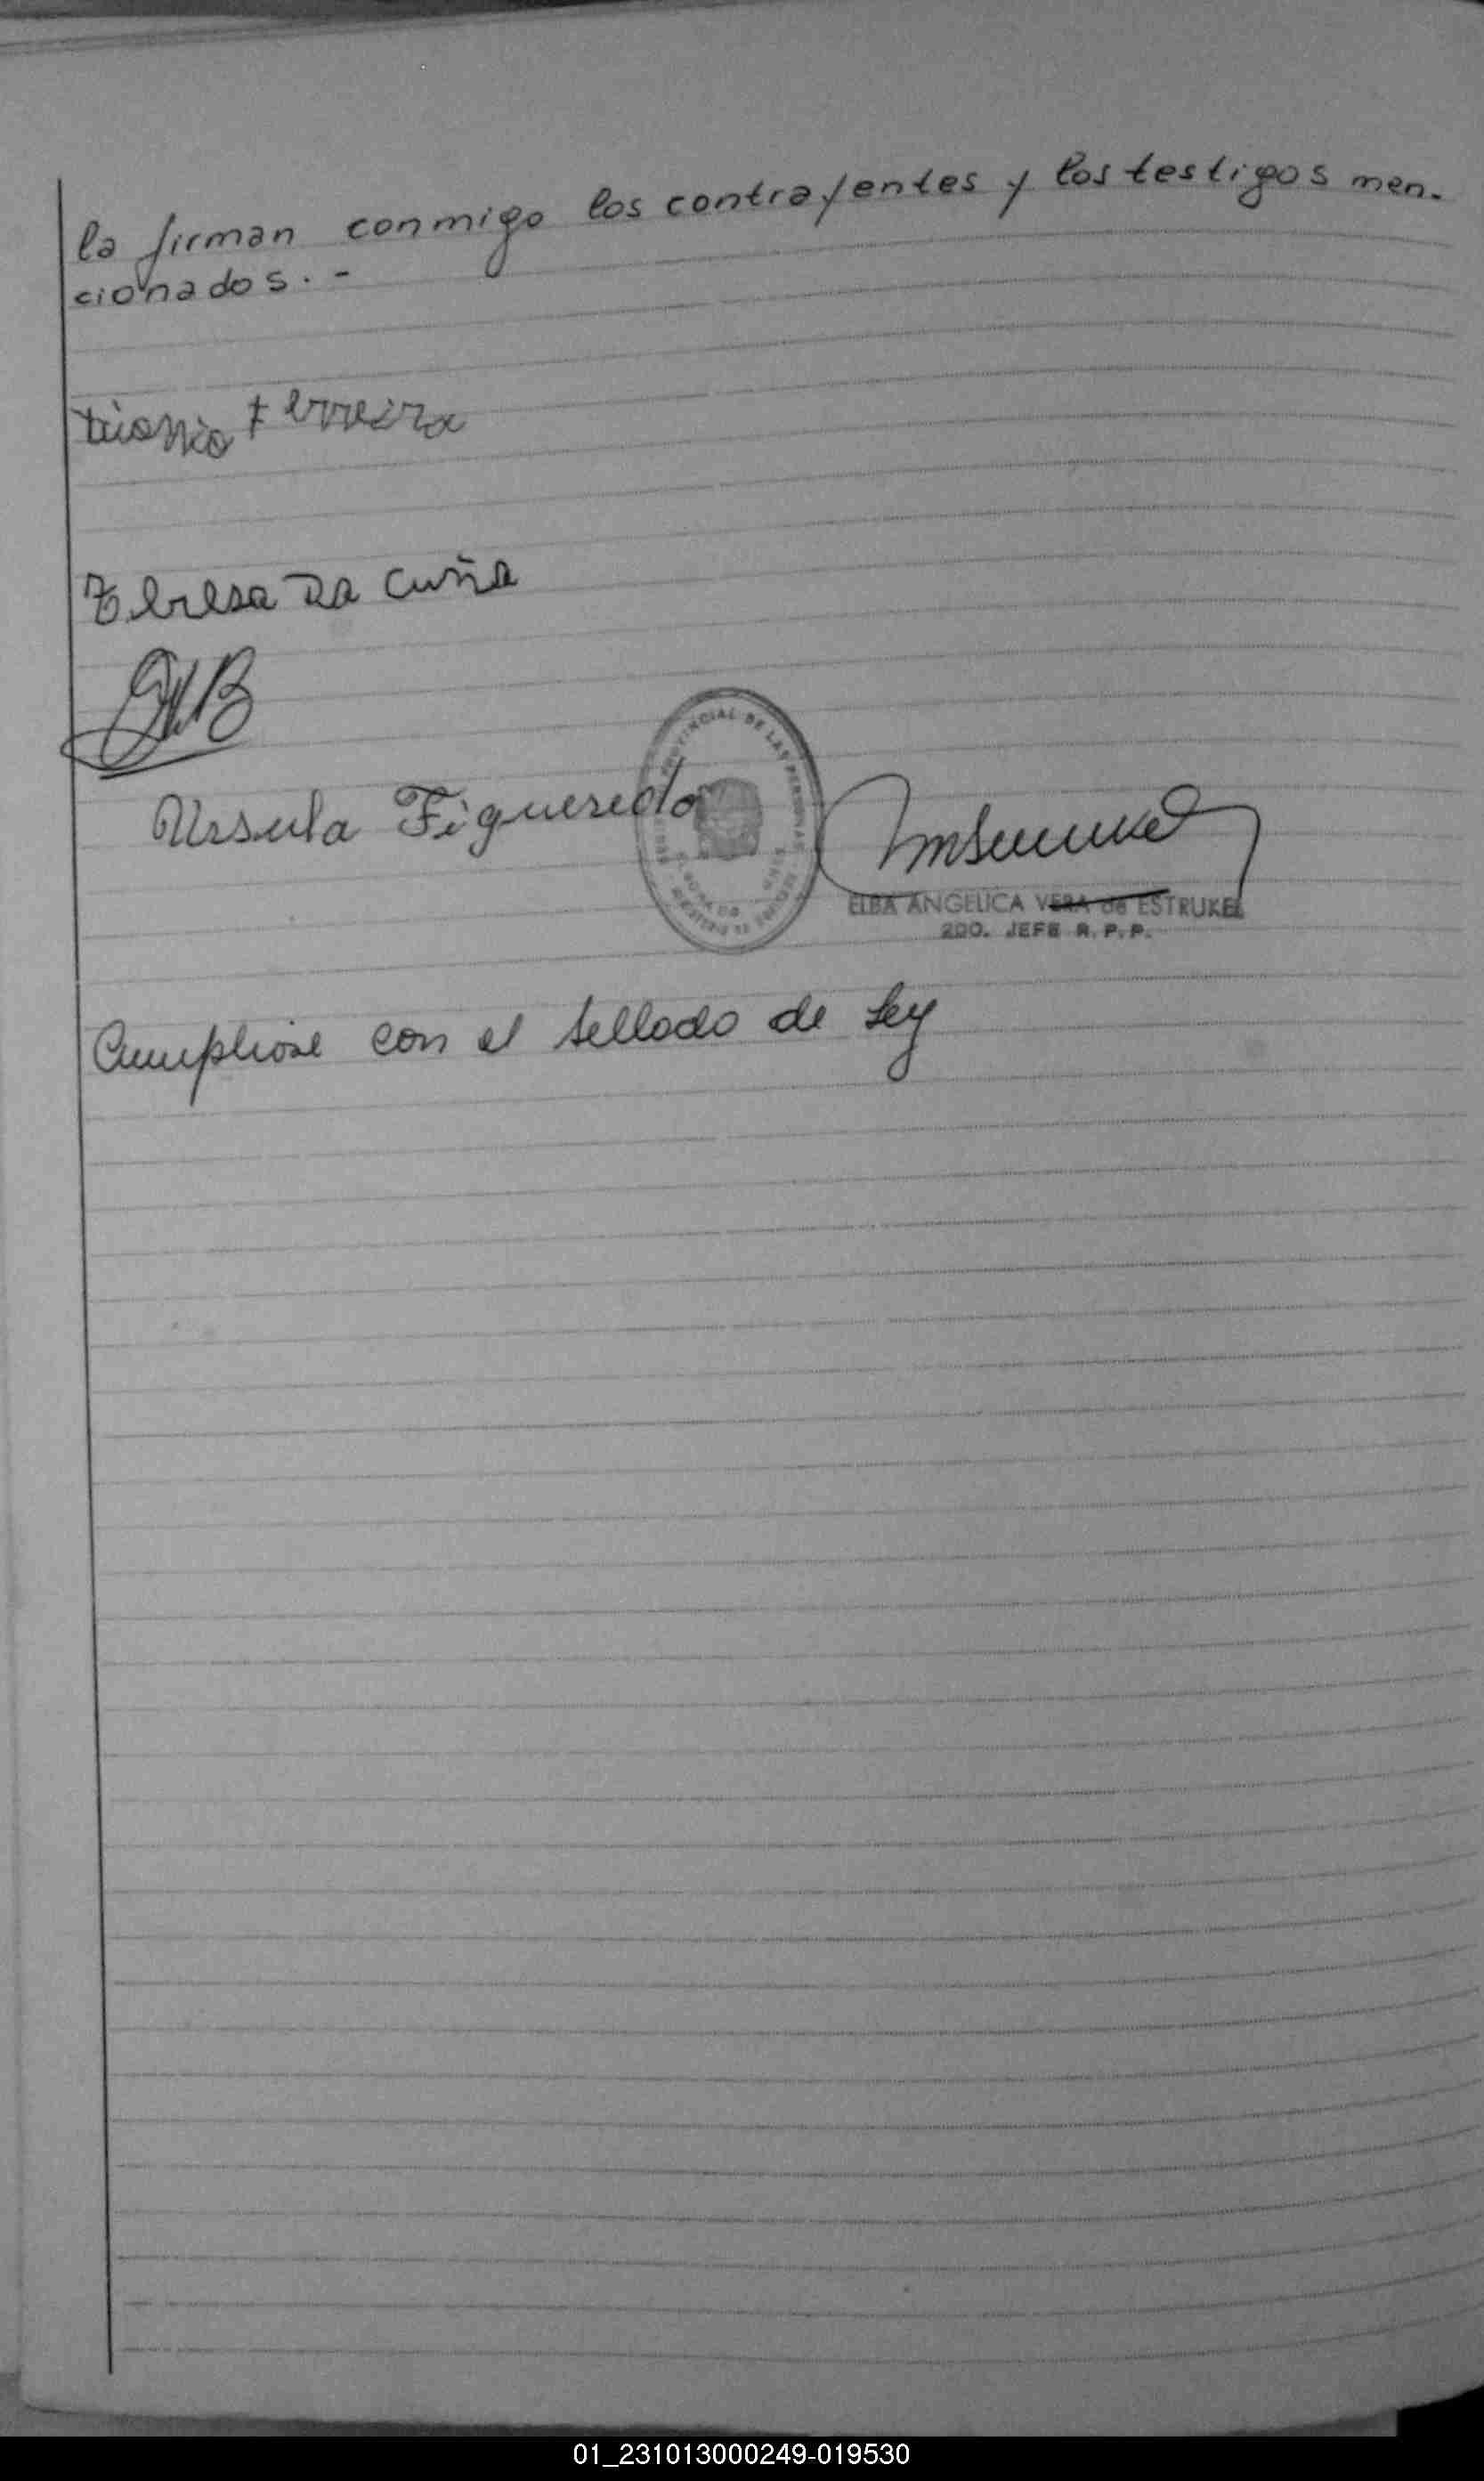 la firman conmigo los contrayentes y los testigos men-
cionados. -
Ferreira
Teresa Da Cuña
Ursula Figueredo
PROVINCIAL DE LAS PERSONAS
ELBA ANGELICA VERA de ESTRUKEL
2DO. JEFE R. P. P.
Cumpliose con el sellado de Ley
01_231013000249-019530